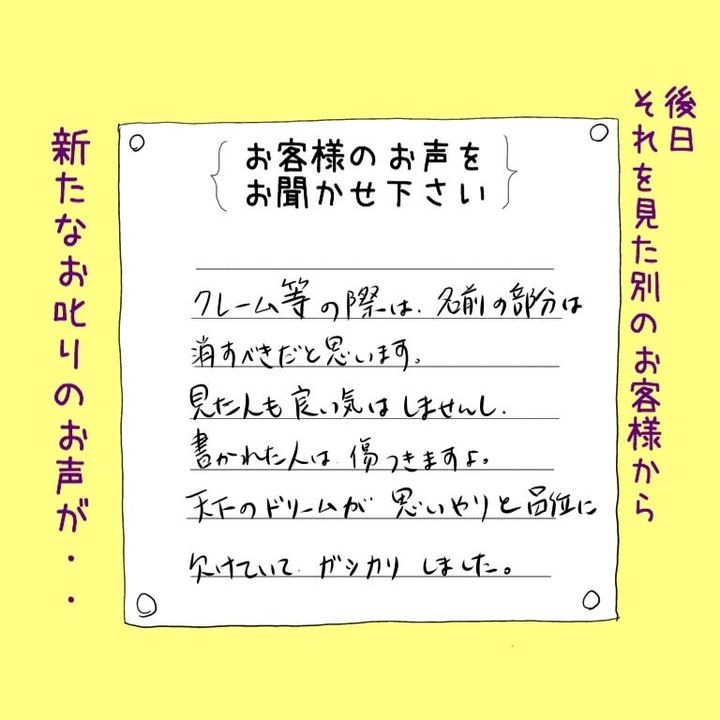 後日
それを見た別のお客様から
お客様のお声を
お聞かせ下さい
クレーム等の際は、名前の部分は
消すべきだと思います。
見た人も良い気はしませんし、
書かれた人は、傷つきますよ。
天下のドリームが 思いやりと品位に
欠けていて、ガッカリ しました。
新たなお叱りのお声が・・・